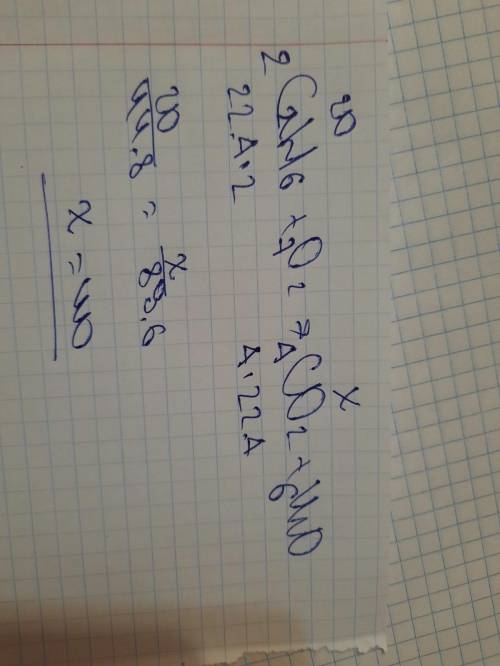 20 x
2C2H6 + 7O2 → 4CO2 + 6H2O
22.4·2 4·22.4
20/44.8 = x/89.6
x = 40